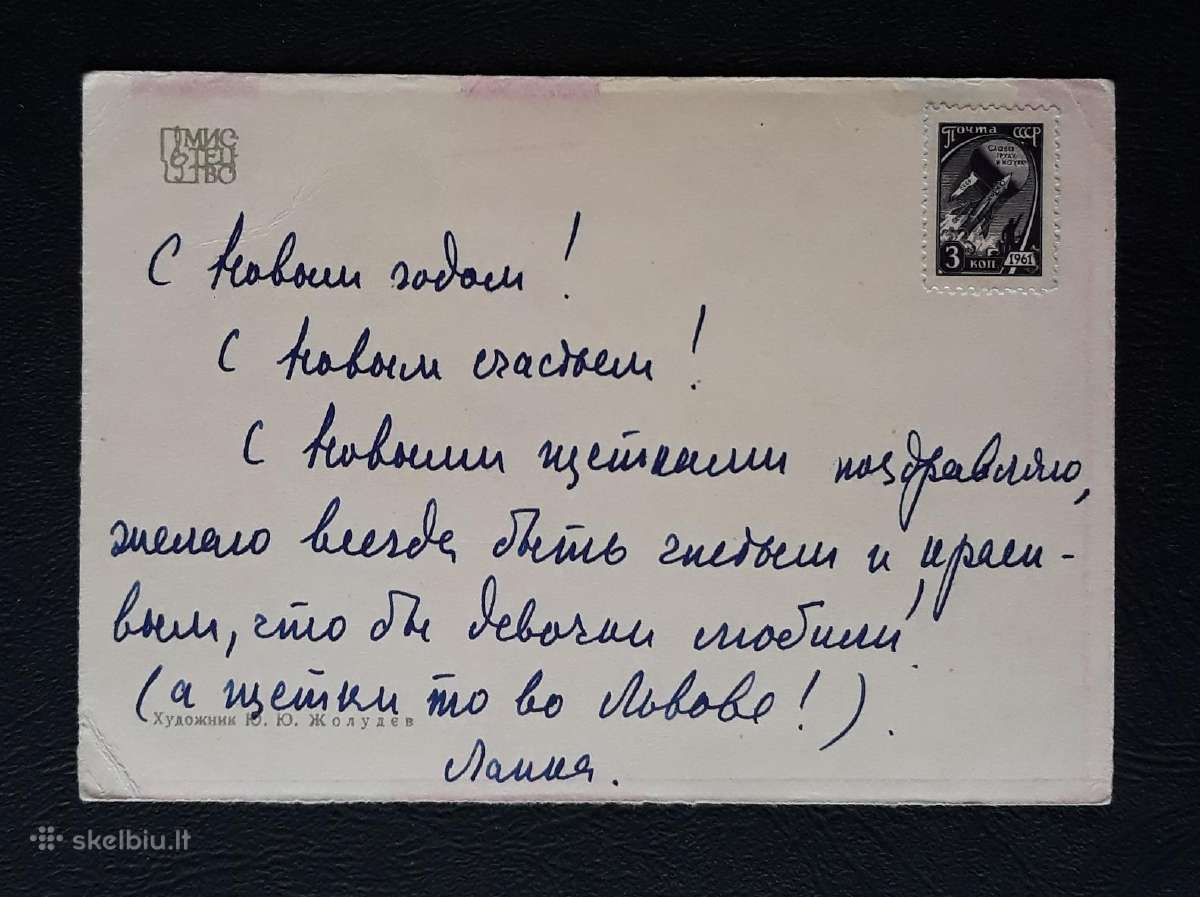 МИС
ТЕЦ
ТВО
Почта СССР
Слава
труду
и науке
3 коп 1961
С новым годом!
С новым счастьем!
С новыми щетками поздравляю,
желаю всегда быть чистым и краси-
вым, что бы девочки любили!
(а щетки то во Львове!)
Художник Ю. Ю. Жолудєв
Лаика.
skelbiu.lt